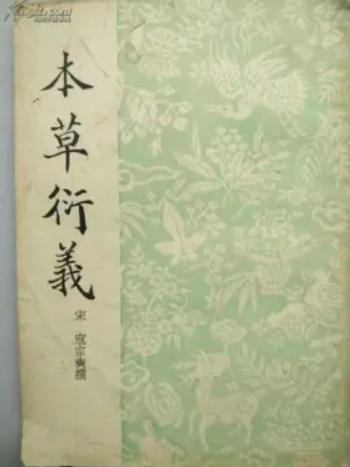 本草衍義
宋 寇宗奭撰